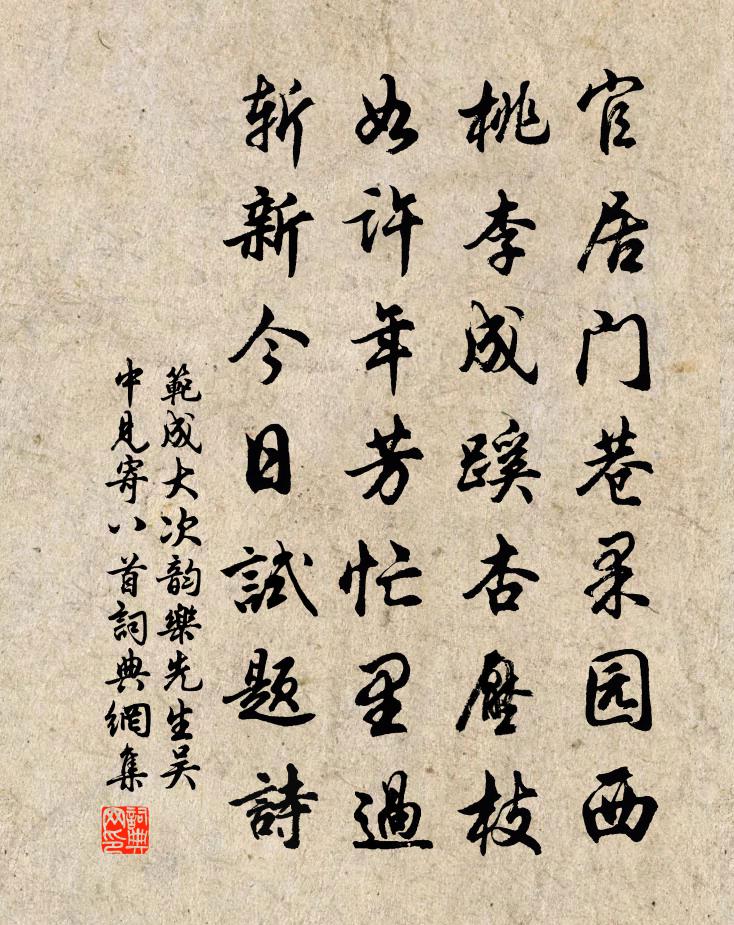 官居门巷果园西
桃李成蹊杏壓枝
如许年芳忙里過
斬新今日試题詩
範成大次韵樂先生吴
中見寄八首詞典網集
詞典网印